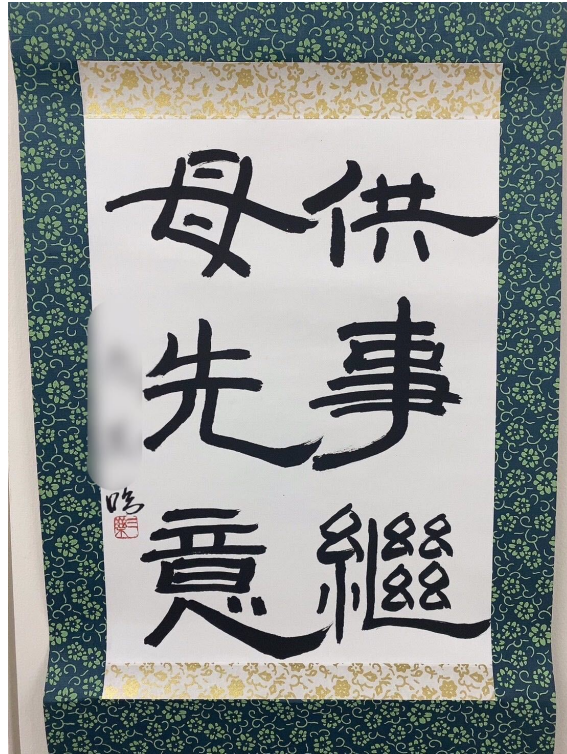 供事繼
母先意